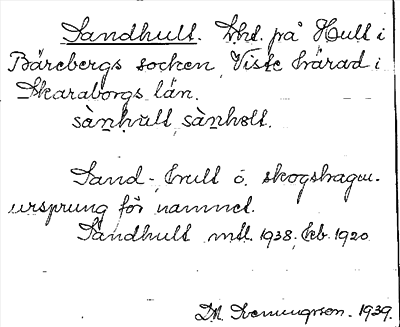 Sandhult. Lht. på Hult i
Bärebergs socken, Viste härad i
Skaraborgs län.
sànhult, sànholt.
Sand-, hult o. skogshagen.
ursprung för namnet.
Sandhult mtl. 1938, Geb. 1920
1939.